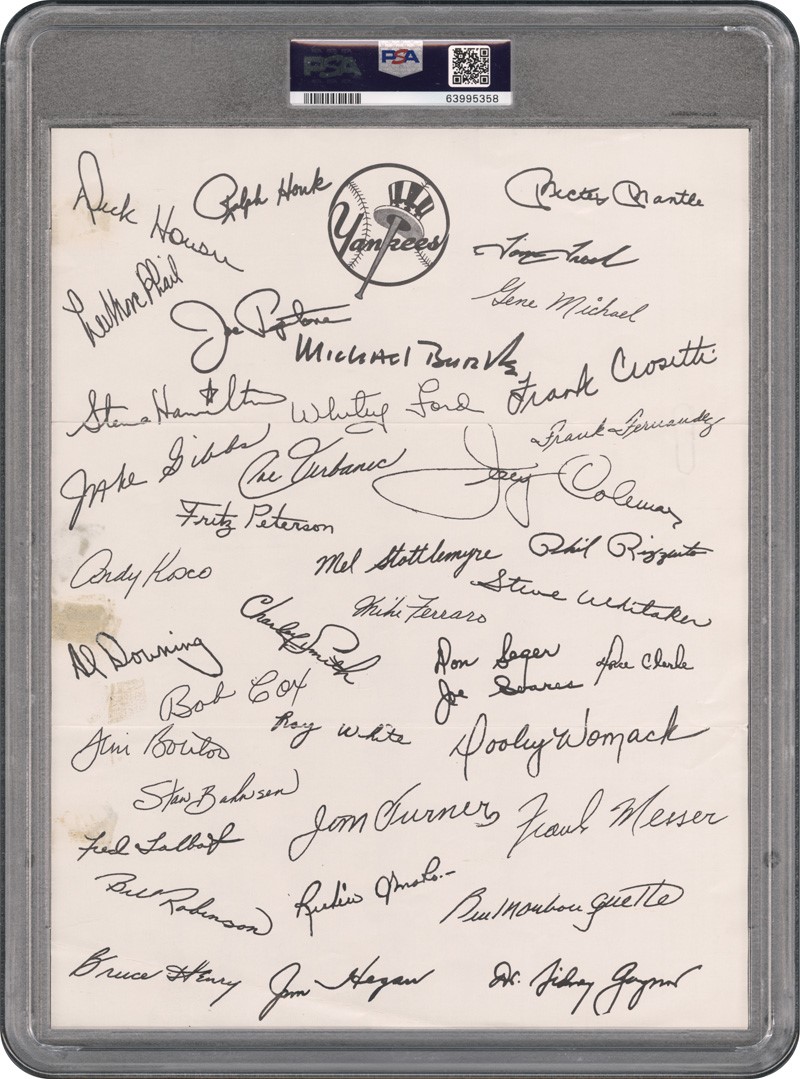 PSA
PSA
63995358
Dick Howser
Ralph Houk
Yankees
Mickey Mantle
Tom Tresh
Lee MacPhail
Gene Michael
Joe Pepitone
MICHAEL BURKE
Frank Crosetti
Steve Hamilton
Whitey Ford
Frank Fernandez
Jake Gibbs
Joe Verbanic
Jerry Coleman
Fritz Peterson
Mel Stottlemyre
Phil Rizzuto
Andy Kosco
Steve Whitaker
Mike Ferraro
Charley Smith
Al Downing
Don Seger
Pete Clarke
Joe Soares
Bob Cox
Roy White
Dooley Womack
Jim Bouton
Stan Bahnsen
Jim Turner
Frank Messer
Fred Talbot
Bill Robinson
Bill Monbouquette
Bruce Henry
Jim Hegan
Dr. Sidney Gaynor